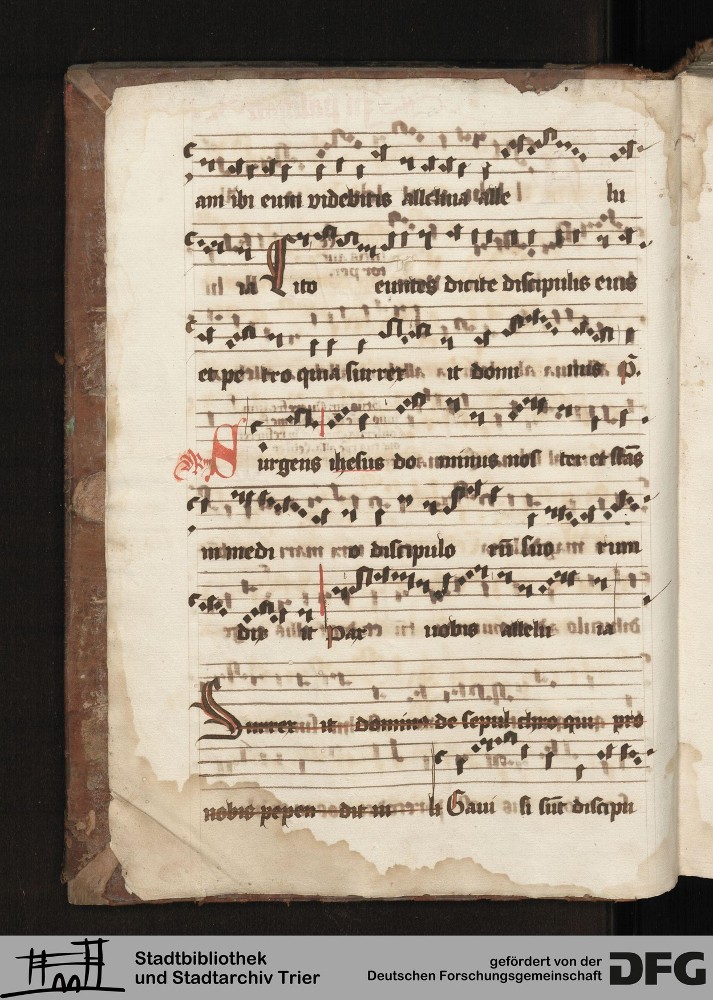 am ibi eum videbitis alleluia alle lu
ia Cito euntes dicite discipulis eius
et pe tro quia surrex it domi nus p̄.
Surgens ihesus do minus nos ter et stās
in medi o discipulo rū suo rum
dix it pax nobis allelu ia
Surrex it dominus de sepul chro qui pro
nobis pepen dit in li Gaui si sūt discipu
Stadtbibliothek
und Stadtarchiv Trier
gefördert von der
Deutschen Forschungsgemeinschaft
DFG